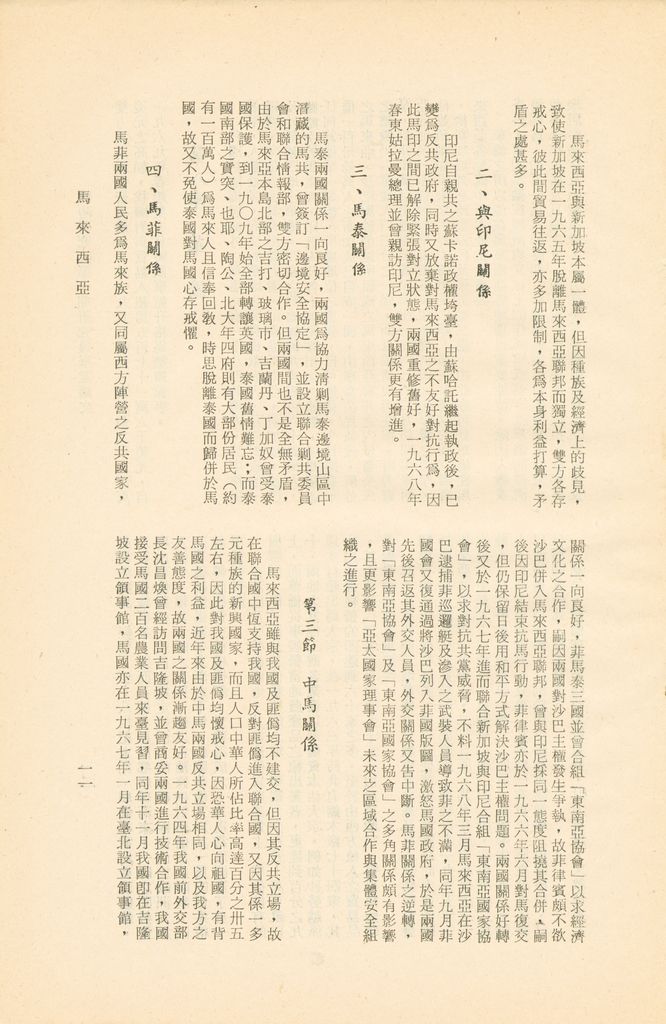 馬來西亞與新加坡本屬一體，但因種族及經濟上的歧見，
致使新加坡在一九六五年脫離馬來西亞聯邦而獨立，雙方各存
戒心，彼此間貿易往返，亦多加限制，各爲本身利益打算，矛
盾之處甚多。
二、與印尼關係
印尼自親共之蘇卡諾政權垮臺，由蘇哈託繼起執政後，已
變爲反共政府，同時又放棄對馬來西亞之不友好對抗行爲，因
此馬印之間已解除緊張對立狀態，兩國重修舊好，一九六八年
春東姑拉曼總理並曾親訪印尼，雙方關係更有增進。
三、馬泰關係
馬泰兩國關係一向良好，兩國爲協力淸剿馬泰邊境山區中
潛藏的馬共，曾簽訂「邊境安全協定」，並設立聯合剿共委員
會和聯合情報部，雙方密切合作。但兩國間也不是全無矛盾，
由於馬來亞本島北部之吉打、玻璃市、吉蘭丹、丁加奴曾受泰
國保護，到一九〇九年始全部轉讓英國，泰國舊情難忘；而泰
國南部之實突、也耶、陶公、北大年四府則有大部份居民（約
有一百萬人）爲馬來人且信奉回敎，時思脫離泰國而歸併於馬
國，故又不免使泰國對馬國心存戒懼。
四、馬菲關係
馬菲兩國人民多爲馬來族，又同屬西方陣營之反共國家，
關係一向良好，菲馬泰三國並曾合組「東南亞協會」以求經濟
文化之合作，嗣因兩國對沙巴主權發生爭執，故菲律賓頗不欲
沙巴併入馬來西亞聯邦，曾與印尼採同一態度阻撓其合併，嗣
後因印尼結束抗馬行動，菲律賓亦於一九六六年六月對馬復交
，但仍保留日後用和平方式解決沙巴主權問題。兩國關係好轉
後又於一九六七年進而聯合新加坡與印尼合組「東南亞國家協
會」，以求對抗共黨威脅，不料一九六八年三月馬來西亞在沙
巴逮捕菲巡邏艇及滲入之武裝人員導致菲之不滿，同年九月菲
國會又復通過將沙巴列入菲國版圖，激怒馬國政府，於是兩國
先後召返其外交人員，外交關係又告中斷。馬菲關係之逆轉，
對「東南亞協會」及「東南亞國家協會」之多角關係頗有影響
，且更影響「亞太國家理事會」未來之區域合作與集體安全組
織之進行。
第三節　中馬關係
馬來西亞雖與我國及匪僞均不建交，但因其反共立場，故
在聯合國中恆支持我國，反對匪僞進入聯合國，又因其係一多
元種族的新興國家，而且人口中華人所佔比率高達百分之卅五
左右，因此對我國及匪僞均懷戒心，因恐華人心向祖國，有背
馬國之利益，近年來由於中馬兩國反共立場相同，以及我方之
友善態度，故兩國之關係漸趨友好。一九六四年我國前外交部
長沈昌煥曾經訪問吉隆坡，並曾商妥兩國進行技術合作，我國
接受馬國二百名農業人員來臺見習，同年十一月我國卽在吉隆
坡設立領事館，馬國亦在一九六七年一月在臺北設立領事館，
馬來西亞
一一